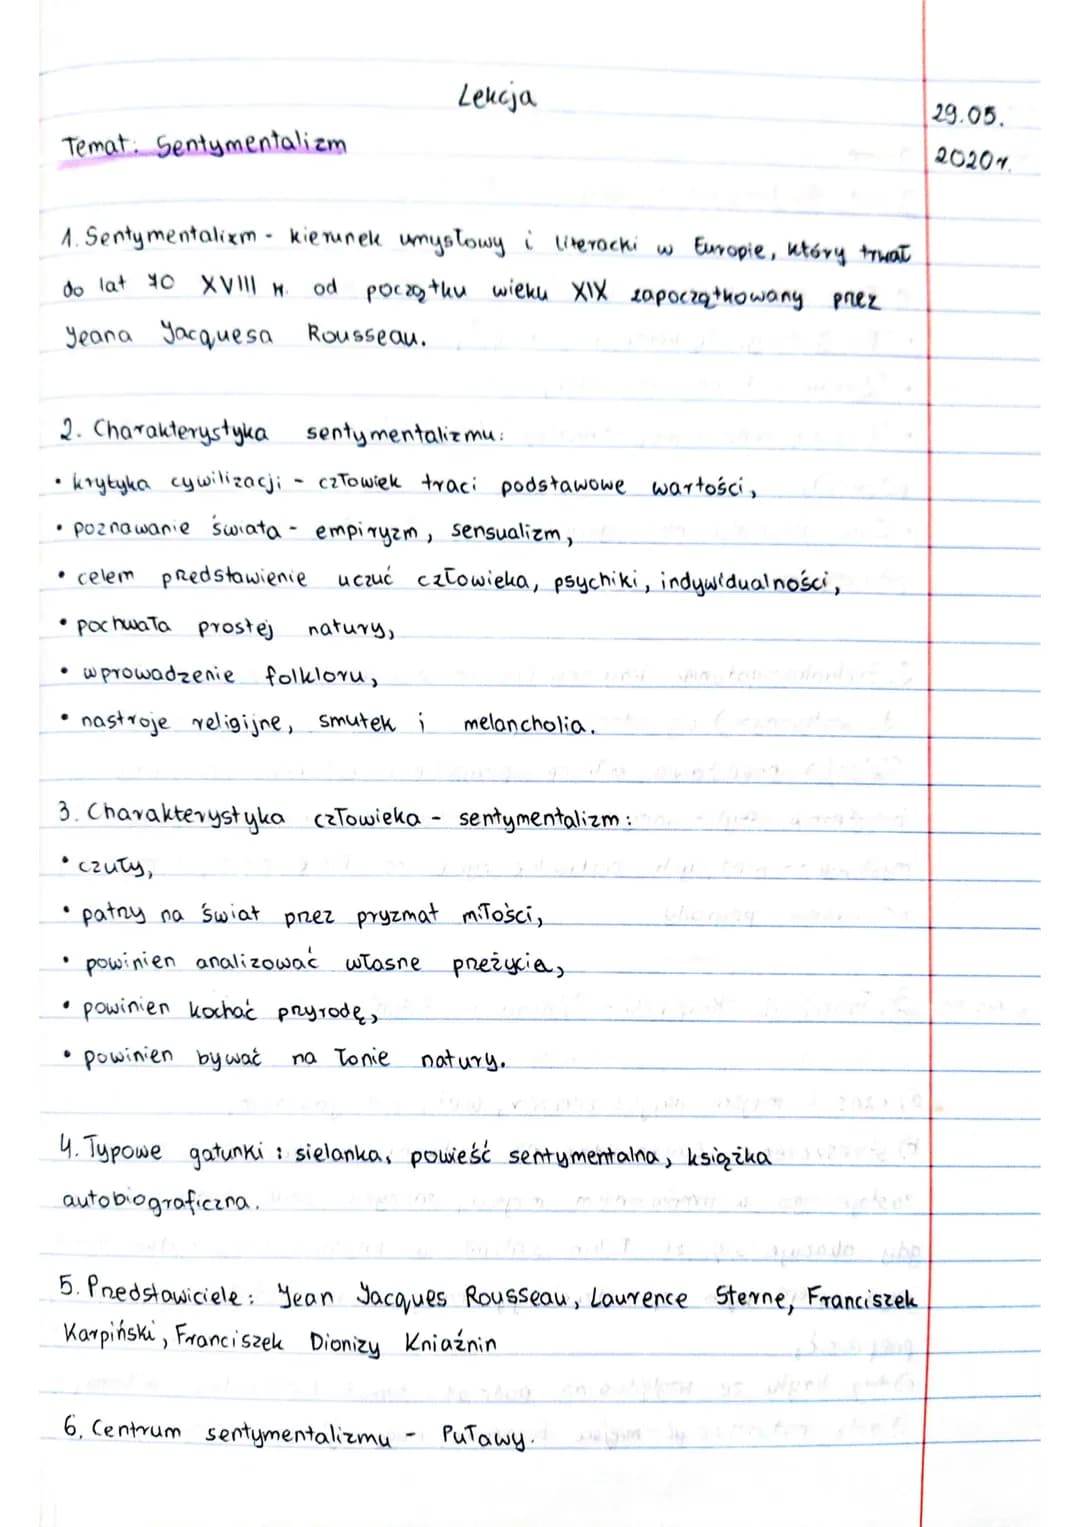 Lekcja
29.05.
Temat: Sentymentalizm
2020r.
1. Sentymentalizm - kierunek umysłowy i literacki w Europie, który trwał
do lat 70 XVIII w. od początku wieku XIX zapoczątkowany przez
Jeana Jacquesa Rousseau.
2. Charakterystyka sentymentalizmu:
• krytyka cywilizacji - człowiek traci podstawowe wartości,
• poznawanie świata - empiryzm, sensualizm,
• celem przedstawienie uczuć człowieka, psychiki, indywidualności,
• pochwała prostej natury,
• wprowadzenie folkloru,
• nastroje religijne, smutek i melancholia.
3. Charakterystyka człowieka - sentymentalizm:
• czuły,
• patrzy na świat przez pryzmat miłości,
• powinien analizować własne przeżycia,
• powinien kochać przyrodę,
• powinien bywać na łonie natury.
4. Typowe gatunki: sielanka, powieść sentymentalna, książka
autobiograficzna.
5. Przedstawiciele: Jean Jacques Rousseau, Laurence Sterne, Franciszek
Karpiński, Franciszek Dionizy Kniaźnin
6. Centrum sentymentalizmu - Puławy.